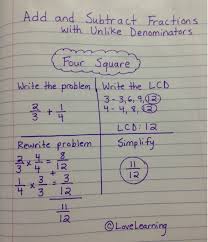 Add and Subtract Fractions
with Unlike Denominators
Four Square
Write the problem
2/3 + 1/4
Write the LCD
3 - 3, 6, 9, 12
4 - 4, 8, 12
LCD: 12
Rewrite problem
2/3 x 4/4 = 8/12
+
1/4 x 3/3 = 3/12
11/12
Simplify
11/12
©LoveLearning